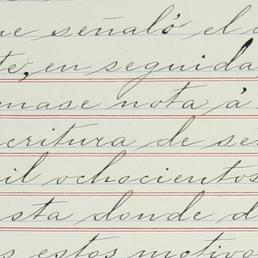 ue señaló el
te, en seguida
mase nota á
critura de se
il ochocientos
sta donde d
s estos motivo